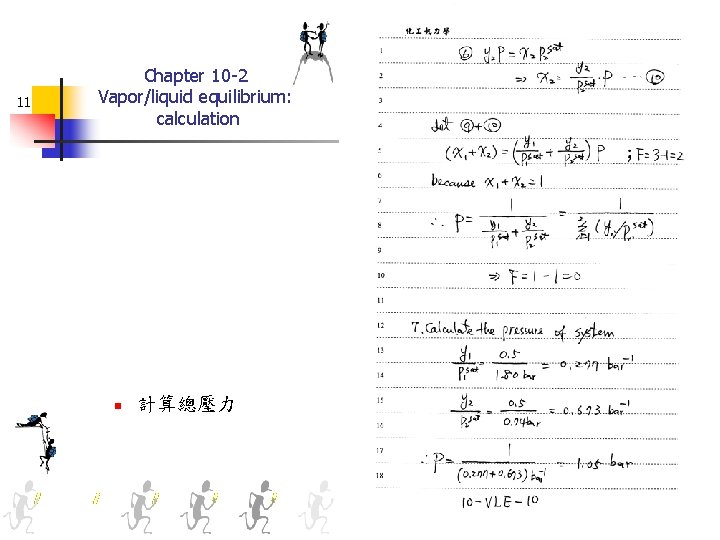 11
Chapter 10-2
Vapor/liquid equilibrium:
calculation
計算總壓力
化工熱力學
1
⑥ y₂P = x₂P₂ˢᵃᵗ
2
⇒ x₂ = y₂/P₂ˢᵃᵗ · P ⋯ ⑩
3
4
let ⑨+⑩
5
(x₁+x₂) = (y₁/P₁ˢᵃᵗ + y₂/P₂ˢᵃᵗ) P ; F=3-1=2
6
because x₁+x₂=1
7
8
∴ P = 1/(y₁/P₁ˢᵃᵗ + y₂/P₂ˢᵃᵗ) = 1/Σ(yᵢ/Pᵢˢᵃᵗ)
9
10
⇒ F = 1-1=0
11
12
7. Calculate the pressure of system
13
14
y₁/P₁ˢᵃᵗ = 0.5/1.80 bar = 0.277 bar⁻¹
15
16
y₂/P₂ˢᵃᵗ = 0.5/0.74 bar = 0.673 bar⁻¹
17
18
∴ P = 1/(0.277+0.673) bar⁻¹ = 1.05 bar
10-VLE-10